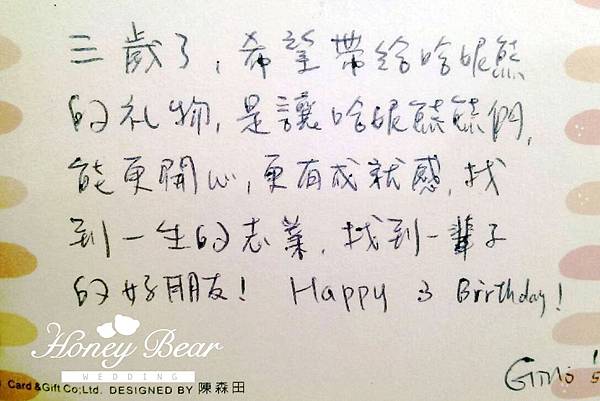 三歲了，希望帶給哈妮熊
的礼物，是讓哈妮熊熊們，
能更開心，更有成就感，找
到一生的志業，找到一輩子
的好朋友！ Happy 3 Birthday!
Honey Bear
WEDDING
Card & Gift Co;Ltd. DESIGNED BY 陳森田
Gino